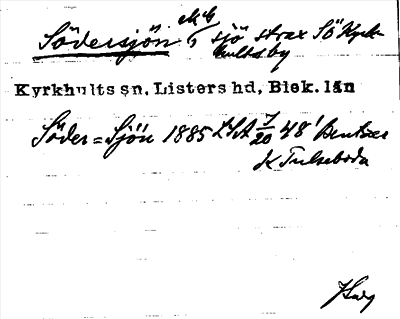 Södersjön, sjö strax SÖ Kyrkhultsby
Kyrkhults sn, Listers hd, Blek. län
Söder=Sjön 1885 LSA 7/20 48
k Tulseboda